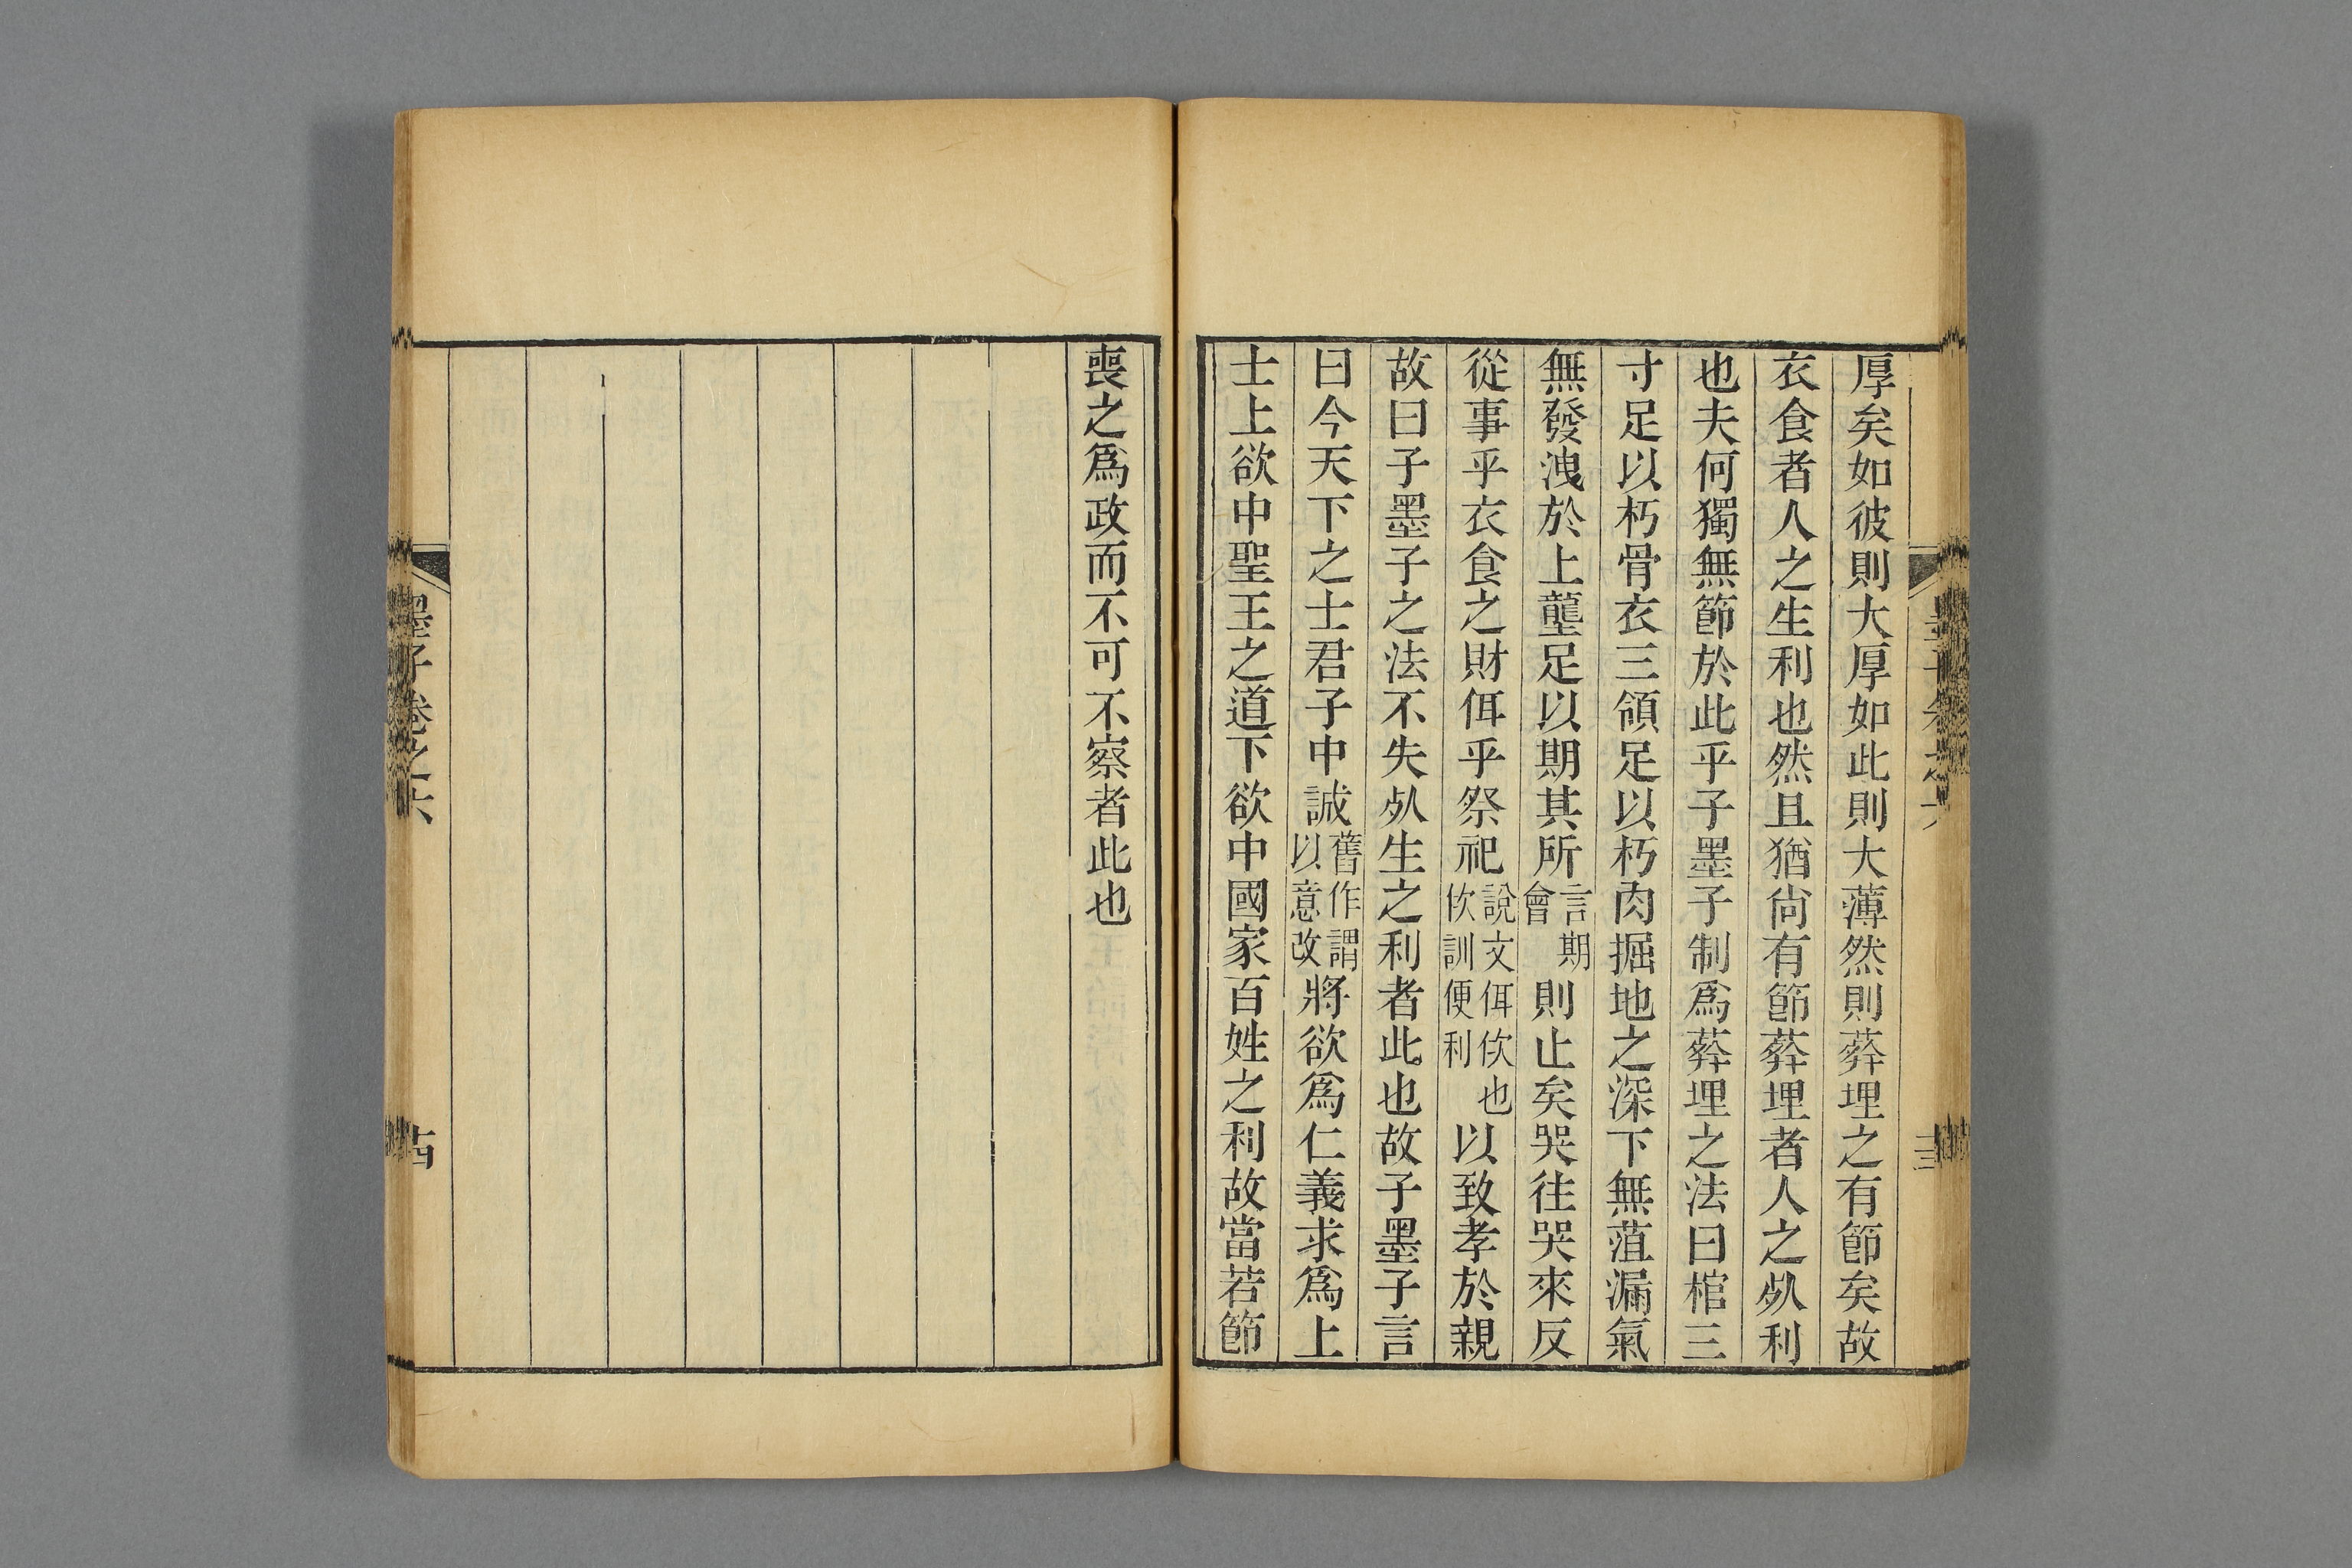 厚矣如彼則大厚如此則大薄然則葬埋之有節矣故
衣食者人之生利也然且猶尚有節葬埋者人之𣦸利
也夫何獨無節於此乎子墨子制爲葬埋之法曰棺三
寸足以朽骨衣三領足以朽肉掘地之深下無菹漏氣
無發洩於上壟足以期其所言期會則止矣哭往哭來反
從事乎衣食之財佴乎祭祀說文佴佽也佽訓便利以致孝於親
故曰子墨子之法不失𣦸生之利者此也故子墨子言
曰今天下之士君子中誠舊作謂以意改將欲爲仁義求爲上
士上欲中聖王之道下欲中國家百姓之利故當若節
喪之爲政而不可不察者此也
墨子卷之六
古